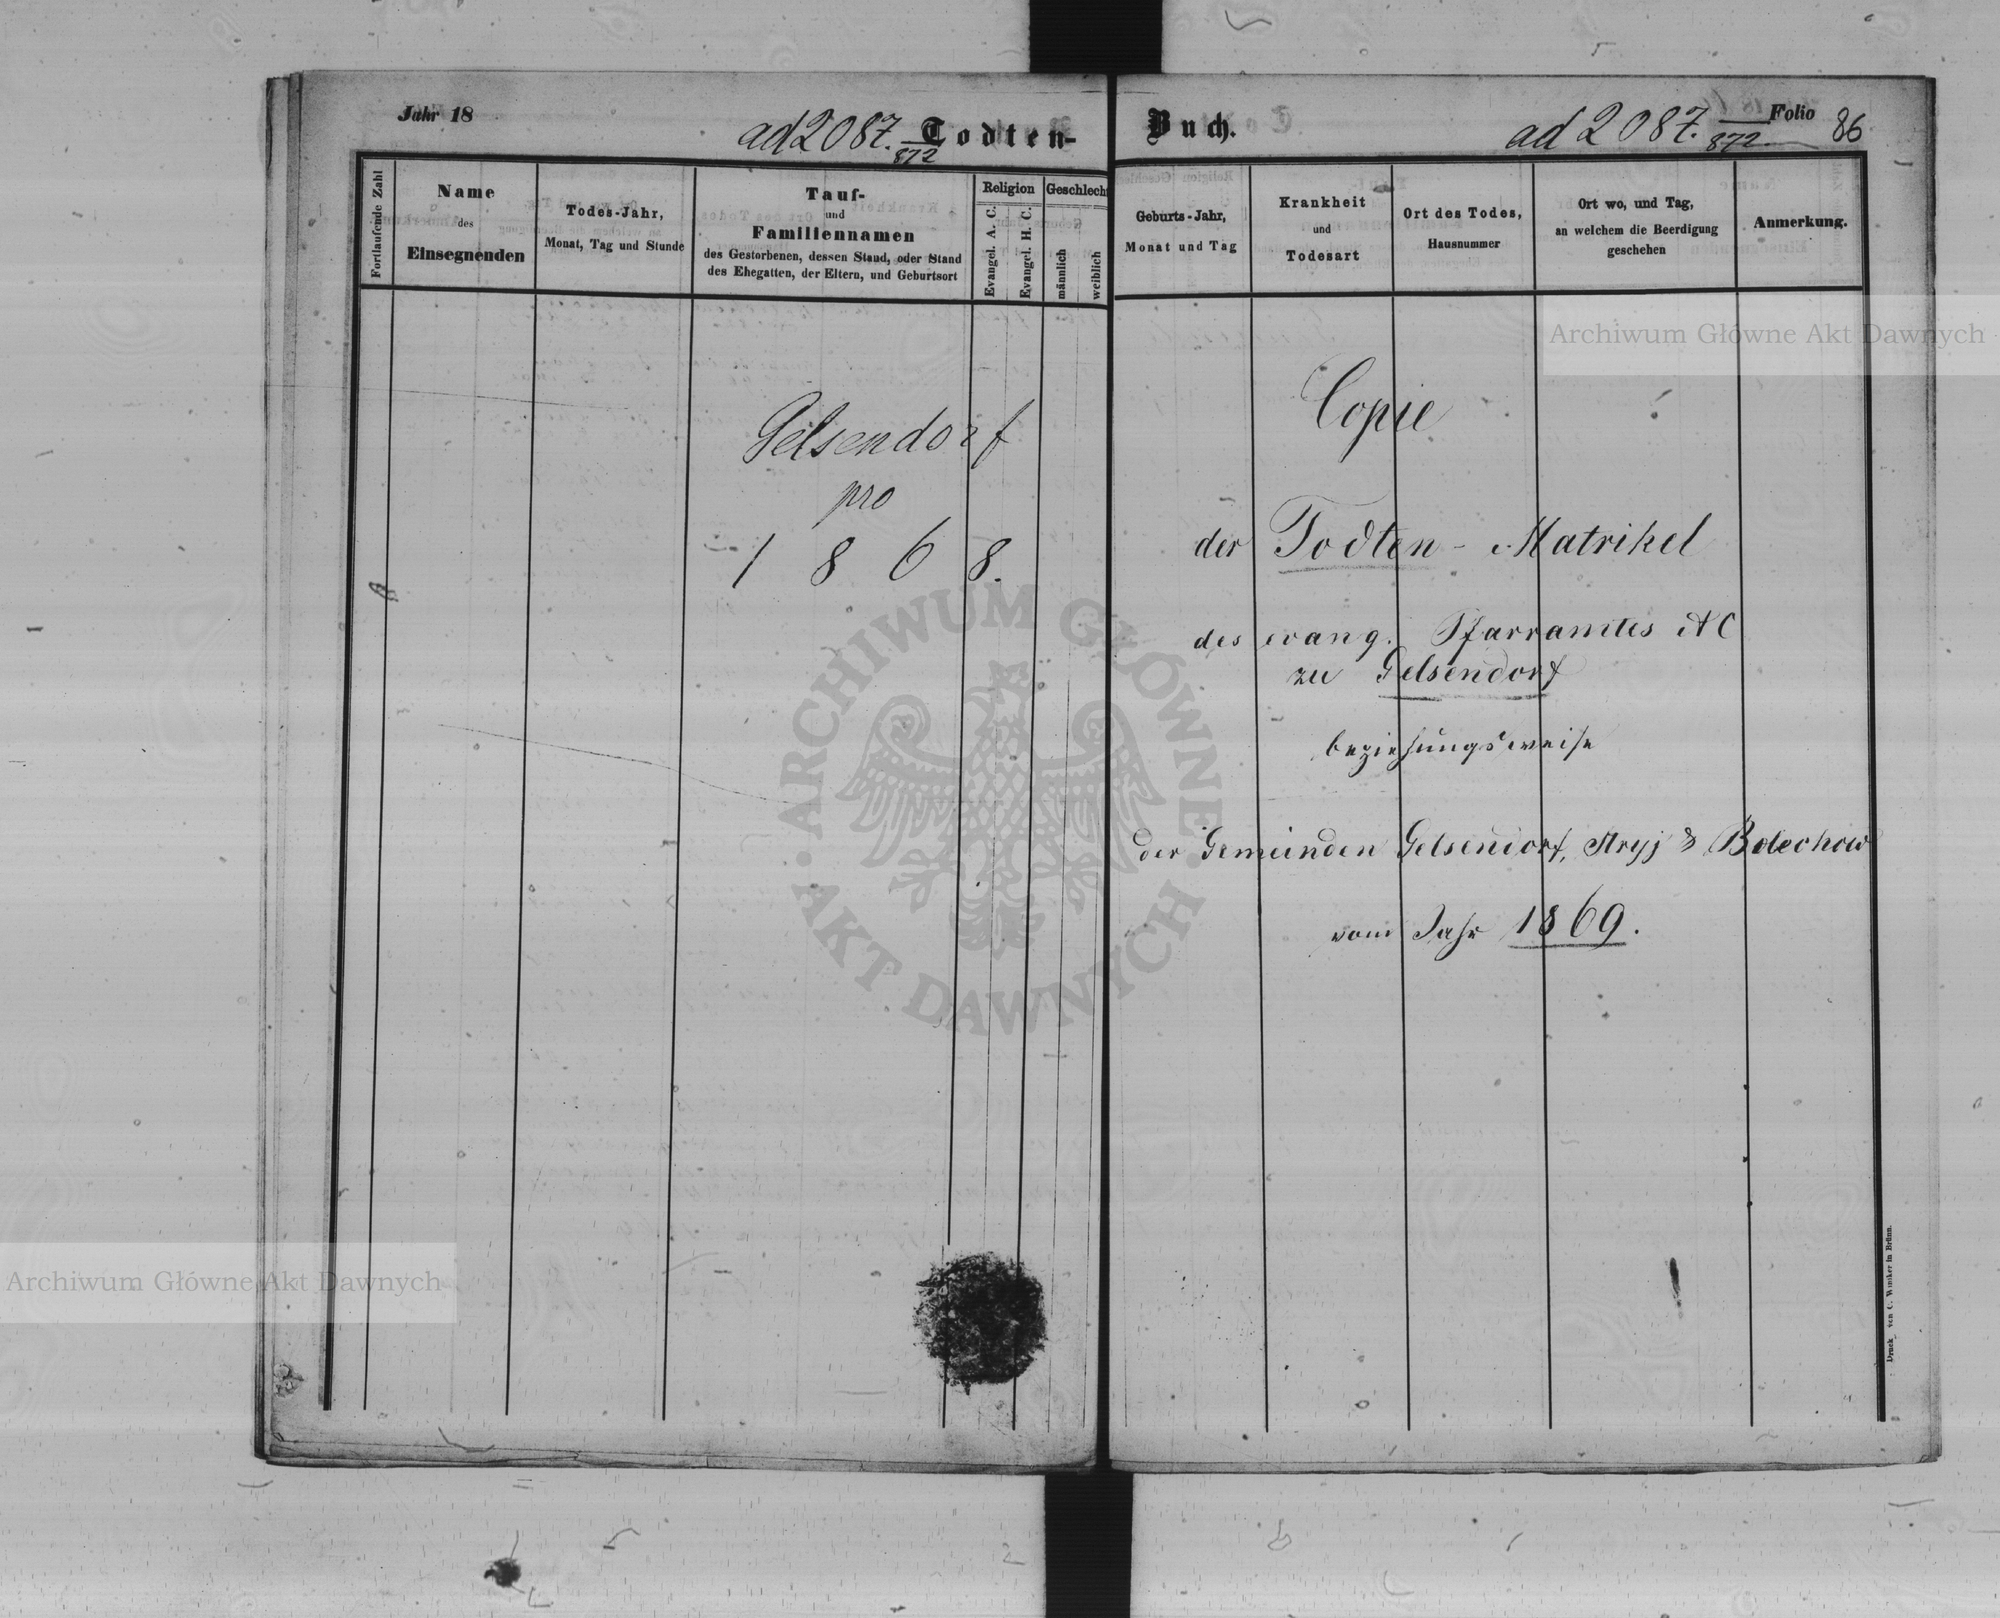 Jahr 18
ad 2087./872
Todten-
Fortlaufende Zahl
Name
des
Einsegnenden
Todes-Jahr,
Monat, Tag und Stunde
Tauf-
und
Familiennamen
des Gestorbenen, dessen Stand, oder Stand
des Ehegatten, der Eltern, und Geburtsort
Religion
Evangel. A. C.
Evangel. H. C.
Geschlecht
männlich
weiblich
Gelsendorf
pro
1868.
Buch.
ad 2087./872
Folio 86
Geburts-Jahr,
Monat und Tag
Krankheit
und
Todesart
Ort des Todes,
Hausnummer
Ort wo, und Tag,
an welchem die Beerdigung
geschehen
Anmerkung.
Copie
der Todten-Matrikel
des evang. Pfarramtes AC
zu Gelsendorf
beziehungsweise
der Gemeinden Gelsendorf, Stryj & Bolechow
vom Jahr 1869.
Druck von C. Winiker in Brünn.
Archiwum Główne Akt Dawnych
ARCHIWUM GŁÓWNE AKT DAWNYCH
Archiwum Główne Akt Dawnych